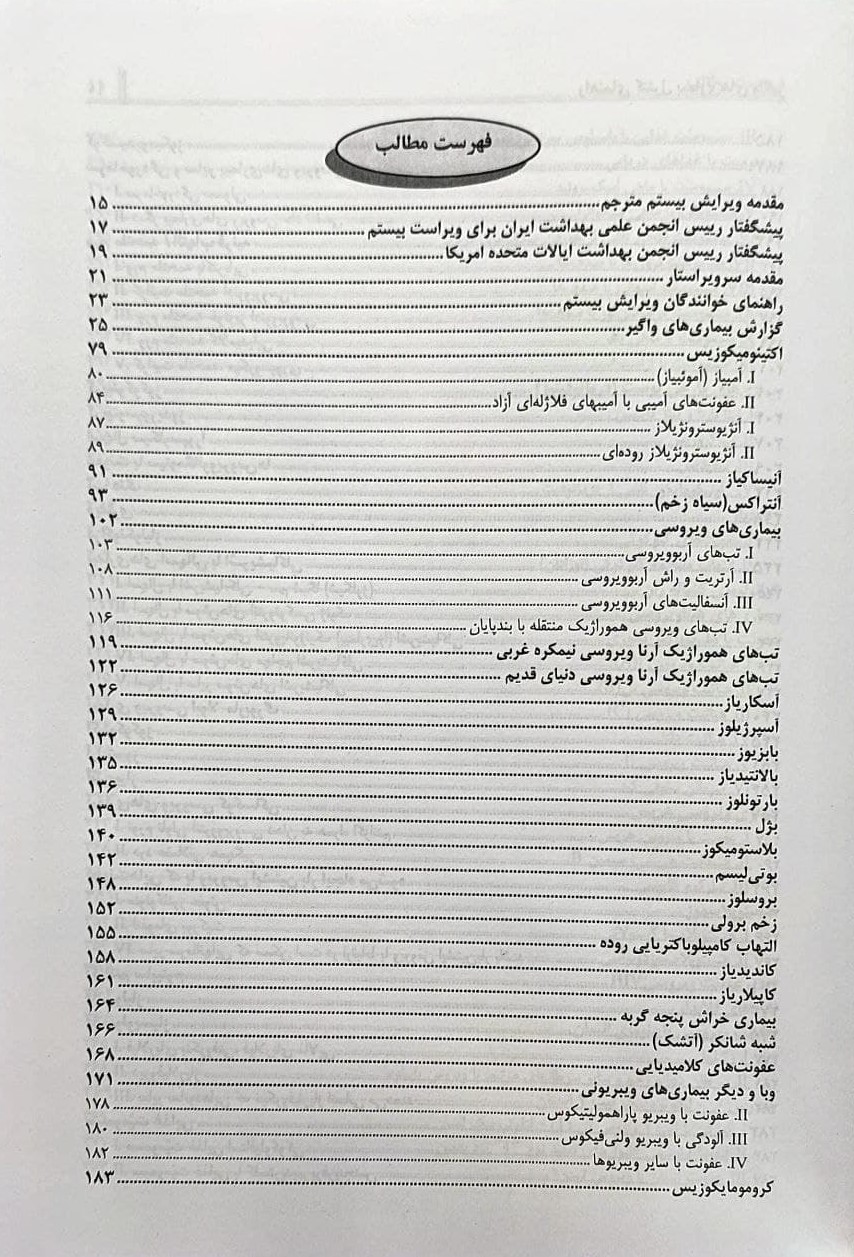 فهرست مطالب
مقدمه ویرایش بیستم مترجم ........ ۱۵
پیشگفتار رییس انجمن علمی بهداشت ایران برای ویراست بیستم ........ ۱۷
پیشگفتار رییس انجمن بهداشت ایالات متحده امریکا ........ ۱۹
مقدمه سرویراستار ........ ۲۱
راهنمای خوانندگان ویرایش بیستم ........ ۲۳
گزارش بیماری‌های واگیر ........ ۲۵
اکتینومیکوزیس ........ ۷۹
I. آمیباز (آموئبیاز) ........ ۸۰
II. عفونت‌های آمیبی با آمیبهای فلاژله‌ای آزاد ........ ۸۴
I. آنژیوسترونژیلاز ........ ۸۷
II. آنژیوسترونژیلاز روده‌ای ........ ۸۹
آنیساکیاز ........ ۹۱
آنتراکس(سیاه زخم) ........ ۹۳
بیماری‌های ویروسی ........ ۱۰۲
I. تب‌های آربوویروسی ........ ۱۰۳
II. آرتریت و راش آربوویروسی ........ ۱۰۸
III. آنسفالیت‌های آربوویروسی ........ ۱۱۱
IV. تب‌های ویروسی هموراژیک منتقله با بندپایان ........ ۱۱۶
تب‌های هموراژیک آرنا ویروسی نیمکره غربی ........ ۱۱۹
تب‌های هموراژیک آرنا ویروسی دنیای قدیم ........ ۱۲۲
آسکاریاز ........ ۱۲۶
آسپرژیلوز ........ ۱۲۹
بابزیوز ........ ۱۳۲
بالانتیدیاز ........ ۱۳۵
بارتونلوز ........ ۱۳۶
بژل ........ ۱۳۹
بلاستومیکوز ........ ۱۴۰
بوتی‌لیسم ........ ۱۴۲
بروسلوز ........ ۱۴۸
زخم برولی ........ ۱۵۲
التهاب کامپیلوباکتریایی روده ........ ۱۵۵
کاندیدیاز ........ ۱۵۸
کاپیلاریاز ........ ۱۶۱
بیماری خراش پنجه گربه ........ ۱۶۴
شبه شانکر (آتشک) ........ ۱۶۶
عفونت‌های کلامیدیایی ........ ۱۶۸
وبا و دیگر بیماری‌های ویبریونی ........ ۱۷۱
II. عفونت با ویبریو پاراهمولیتیکوس ........ ۱۷۸
III. آلودگی با ویبریو ولنی‌فیکوس ........ ۱۸۰
IV. عفونت با سایر ویبریوها ........ ۱۸۲
کرومومایکوزیس ........ ۱۸۳